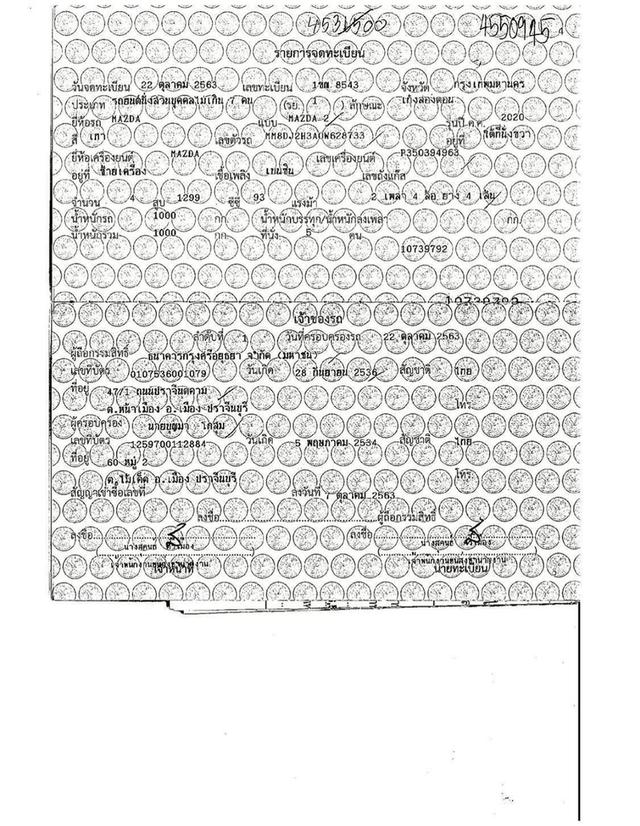 4550945
รายการจดทะเบียน
วันจดทะเบียน 22 ตุลาคม 2563 เลขทะเบียน 8543 จังหวัด กรุงเทพมหานคร
ประเภท รถยนต์นั่งส่วนบุคคลไม่เกิน 7 คน (รย. 1 ) ลักษณะ เก๋งสองตอน
ยี่ห้อรถ MAZDA แบบ MAZDA 2 รุ่นปี ค.ศ. 2020
สี เทา เลขตัวรถ MM8DJ2H3A0W628733 อยู่ที่ ใต้ที่นั่งขวา
ยี่ห้อเครื่องยนต์ MAZDA เลขเครื่องยนต์ P350394963
อยู่ที่ ซ้ายเครื่อง เชื้อเพลิง เบนซิน เลขถังแก๊ส
จำนวน 4 สูบ 1299 ซีซี 93 แรงม้า 2 เพลา 4 ล้อ ยาง 4 เส้น
น้ำหนักรถ 1000 กก. น้ำหนักบรรทุก/น้ำหนักลงเพลา กก.
น้ำหนักรวม 1000 กก. ที่นั่ง 5 คน
10739792
เจ้าของรถ
ลำดับที่ 1 วันที่ครอบครองรถ 22 ตุลาคม 2563
ผู้ถือกรรมสิทธิ์ ธนาคารกรุงศรีอยุธยา จำกัด (มหาชน)
เลขที่บัตร 0107536001079 วันเกิด 28 กันยายน 2536 สัญชาติ ไทย
ที่อยู่ 47/1 ถนนปราจีนตคาม
ต.หน้าเมือง อ.เมือง ปราจีนบุรี โทร.
ผู้ครอบครอง
เลขที่บัตร 1259700112884 วันเกิด 5 พฤษภาคม 2534 สัญชาติ ไทย
ที่อยู่ 60 หมู่ 2
ต.ไม้เค็ด อ.เมือง ปราจีนบุรี โทร.
สัญญาเช่าซื้อเลขที่ ลงวันที่ 7 ตุลาคม 2563
ลงชื่อ ผู้ถือกรรมสิทธิ์
ลงชื่อ ลงชื่อ
เจ้าพนักงานขนส่งชำนาญงาน เจ้าพนักงานขนส่งชำนาญงาน
เจ้าหน้าที่ นายทะเบียน